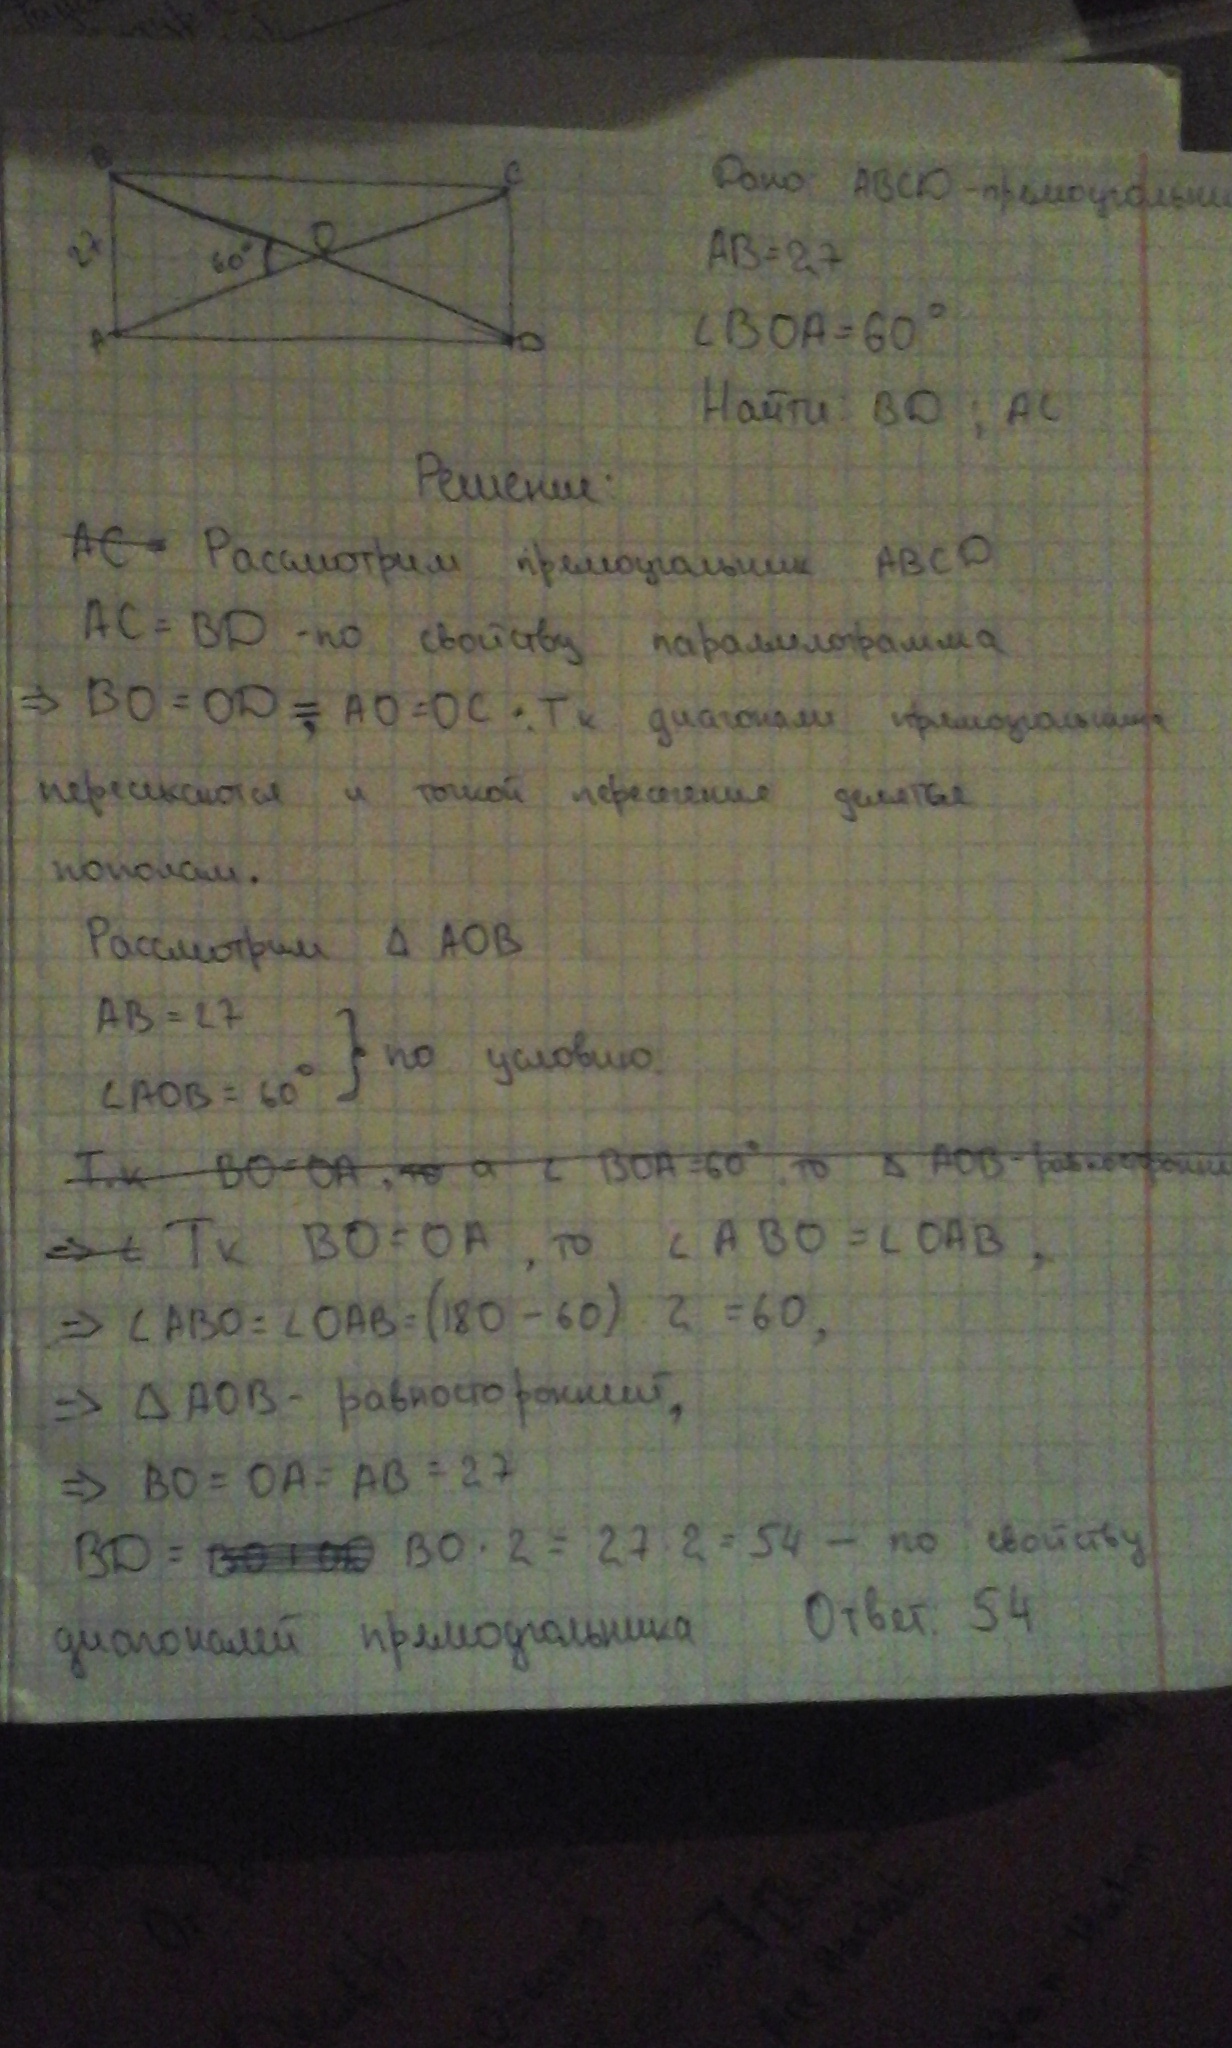 B
C
27
60°
O
A
D
Дано: ABCD - прямоугольни
AB=27
∠BOA=60°
Найти: BD ; AC
Решение:
AC = Рассмотрим прямоугольник ABCD
AC = BD - по свойству параллелограмма
⇒ BO = OD = AO = OC . Тк диагонали прямоугольника
пересекаются и точкой пересечения делятся
пополам.
Рассмотрим Δ AOB
AB = 27
∠AOB = 60° } по условию.
Т.к BO=OA, то а ∠ BOA=60°, то Δ AOB - равносторонни
⇒ ∠ Тк BO=OA, то ∠ABO = ∠OAB,
⇒ ∠ABO = ∠OAB = (180 - 60) 2 = 60,
⇒ Δ AOB - равносторонний,
⇒ BO = OA = AB = 27
BD = BO · 2 = 27 · 2 = 54 - по свойству
диагоналей прямоугольника Ответ. 54